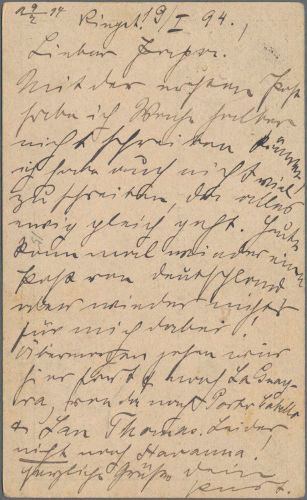 29/2 94
Kingst. 19/I 94.,
Lieber Papa.
Mit der ersten Post
habe ich Wache halber
nicht schreiben können
ich habe auch nicht viel
zu schreiben, da alles
ewig gleich geht. Heute
kam mal wieder eine
Post von Deutschland
aber wieder nichts
für mich dabei!
Übermorgen gehen wir
hier fort & nach La Guay-
ra, von da nach Porto Cabello
& San Thomas. Leider
nicht nach Havanna!
Herzliche Grüße dein